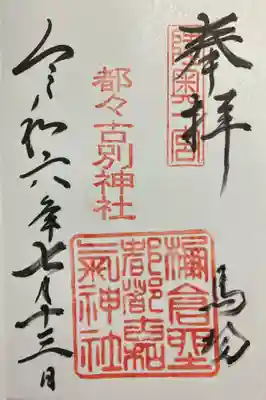 奉拝
陸奥一宮
馬場
都々古別神社
都都古和
氣神社
令和六年七月十三日